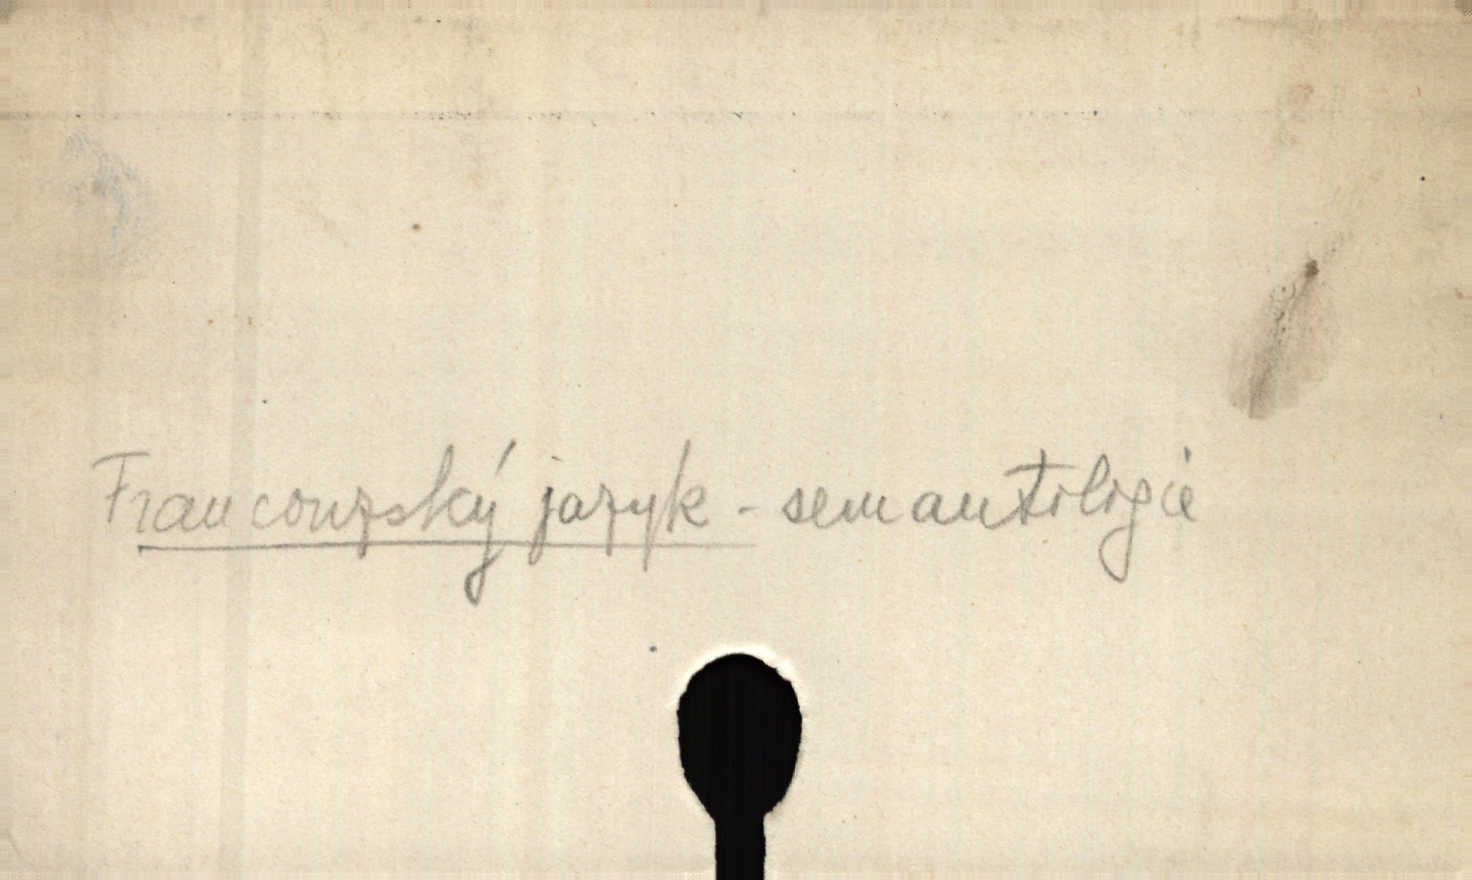 Francouzský jazyk - semantologie